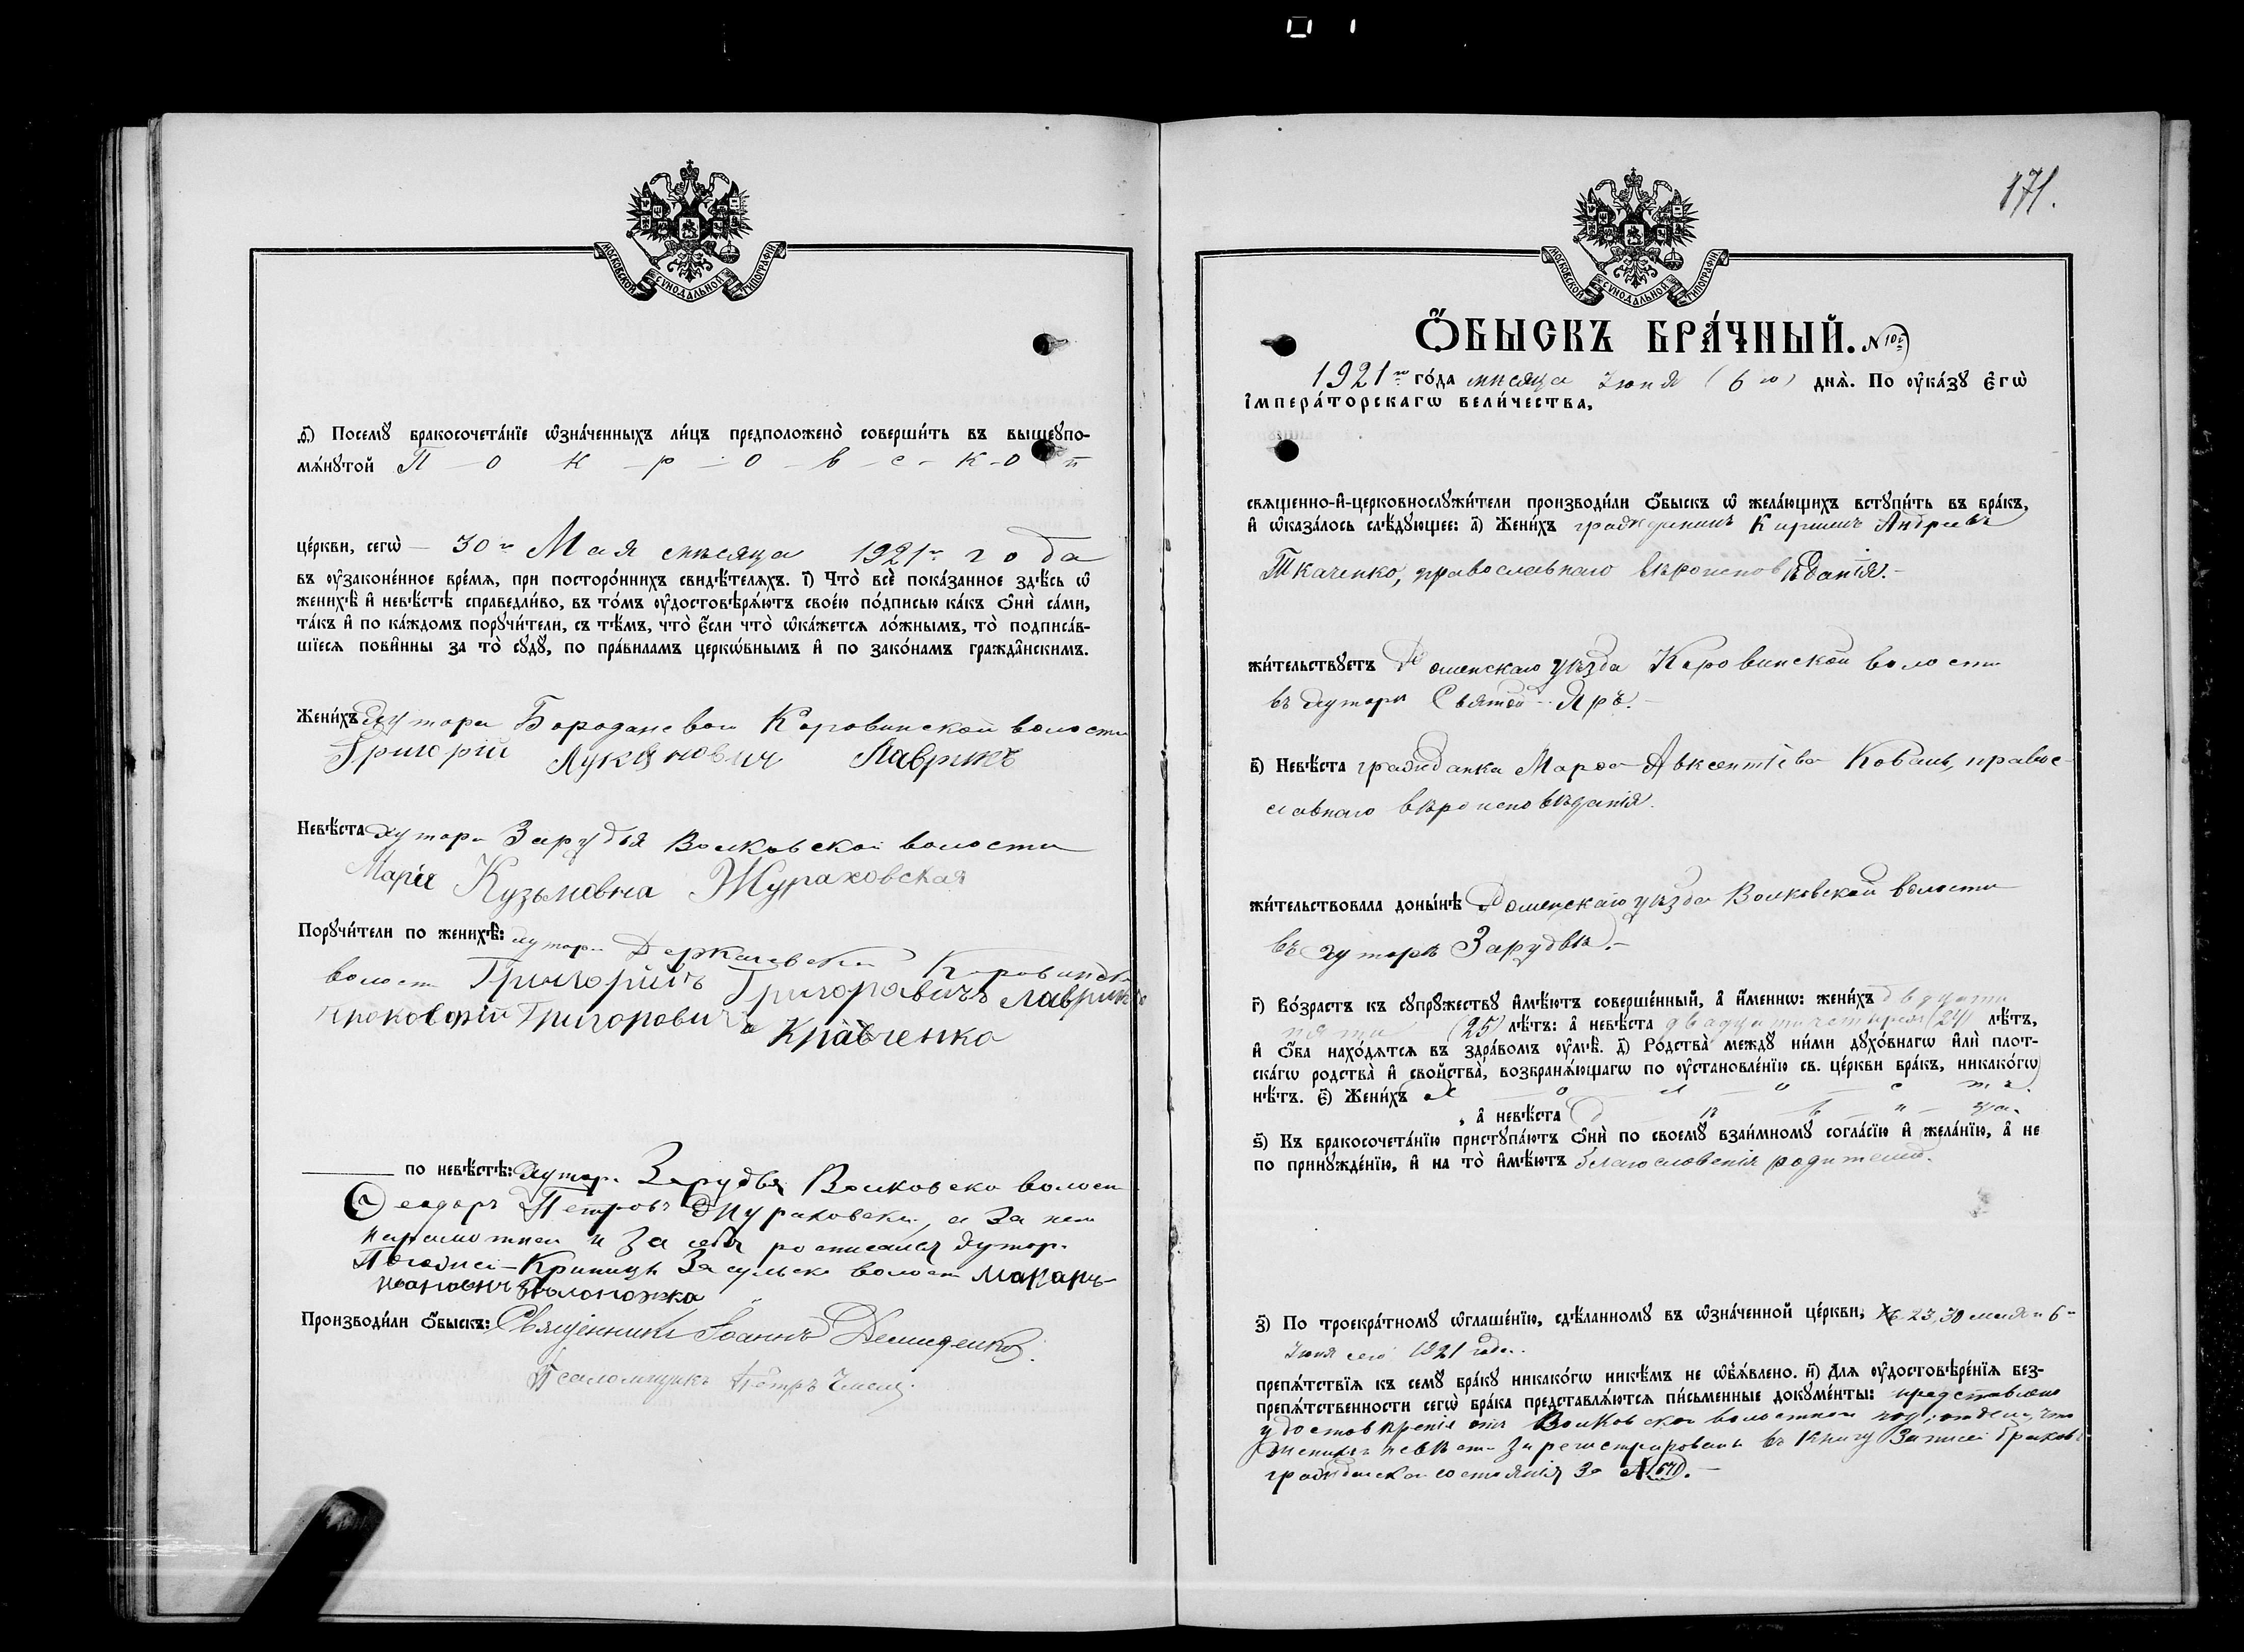 МОСКОВСКОЙ СѴНОДАЛЬНОЙ ТИПОГРАФІИ
ѳ҃) Посемꙋ̀ бракосочета́нїе ѡ҆зна́ченныхъ ли́цъ предположено̀ соверши́ть въ вышеꙋпо-
мѧ́нꙋтой П-о-к-р-о-в-с-к-о-й
це́ркви, сегѡ̀ 30го Мая мѣсяца 1921го года
въ ᲂу҆зако́ненное вре́мѧ, при посторо́ннихъ свидѣ́телѧхъ. і҃) Что̀ всѐ пока́занное здѣ́сь ѡ҆
женихѣ̀ и҆ невѣ́стѣ справедли́во, въ то́мъ ᲂу҆достовѣрѧ́ютъ свое́ю по́дписью ка́къ ѻ҆нѝ са́ми,
та́къ и҆ по ка́ждомъ порꙋчи́тели, съ тѣ́мъ, что̀ є҆́сли что̀ ѡ҆ка́жетсѧ ло́жнымъ, то̀ подписа́в-
шїесѧ пови́нны за то̀ сꙋдꙋ̀, по пра́виламъ церко́внымъ и҆ по зако́намъ гражда́нскимъ.
Жени́хъ хутора Бородаевой Коровинской волости
Григорій Лукяновичъ Лаврикъ
Невѣ́ста хутора Зарудья Волковской волости
Марія Кузьмовна Жураховская
Порꙋчи́тели по женихѣ̀: хутора Деркачевски Коровинск
волост Григорийъ Григоровичъ Лаврик
Прокофій Григорович Кравченко
по невѣ́стѣ: хутор. Зарудья Волковско волост
Ѳеодоръ Петровъ Жураховски, а за нег
неграмотнаго и за себя росписался хутор.
Криница Засульско волост Макаръ
Ивановичъ Білоножка
Производи́ли ѻ҆́быскъ: Священникъ Іоаннъ Демиденко.
Псаломщикъ Петръ
171.
МОСКОВСКОЙ СѴНОДАЛЬНОЙ ТИПОГРАФІИ
Ѻ҆́БЫСКЪ БРА́ЧНЫЙ. N 10й
1921го го́да мѣсяца Іюня (6го) днѧ̀. По ᲂу҆ка́зꙋ є҆гѡ̀
і҆мпера́торскагѡ вели́чества,
свѧщенно-и҆-церковнослꙋжи́тели производи́ли ѻ҆́быскъ ѡ҆ жела́ющихъ встꙋпи́ть въ бра́къ,
и҆ ѡ҆каза́лось слѣ́дꙋющее: а҃) Жени́хъ гражданинъ Кириллъ Андреевъ
Ткаченко, православнаго вѣроисповѣданія.-
жи́тельствꙋетъ Роменскаго уѣзда Коровинской волости
въ хуторѣ Святой-Яръ.-
в҃) Невѣ́ста гражданка Марѳа Авксентіева Коваль, правос-
лавнаго вѣроисповѣданія.
жи́тельствовала доны́нѣ Роменскаго уѣзда Волковской волости
въ хуторѣ Зарудьѣ.-
г҃) Во́зрастъ къ сꙋпрꙋ́жествꙋ и҆мѣ́ютъ соверше́нный, а҆ и҆́меннѡ: жени́хъ двадцати
пяти (25) лѣ́тъ: а҆ невѣ́ста двадцатичетырех (24) лѣ́тъ,
и҆ ѻ҆́ба нахо́дѧтсѧ въ здра́вомъ ᲂу҆мѣ̀. д҃) Родства̀ междꙋ̀ ни́ми дꙋхо́внагѡ и҆лѝ плот-
ска́гѡ родства̀ и҆ свойства̀, возбранѧ́ющагѡ по ᲂу҆становле́нїю св. це́ркви бра́къ, никако́гѡ
нѣ́тъ. є҃) Жени́хъ х о л о с т ъ.
, а҆ невѣ́ста д ѣ в и ца.
ѕ҃) Къ бракосочета́нїю пристꙋпа́ютъ ѻ҆нѝ по своемꙋ̀ взаи́мномꙋ согла́сїю и҆ жела́нїю, а҆ не
по принꙋжде́нїю, и҆ на то̀ и҆мѣ́ютъ благословенія родителей.
з҃) По троекра́тномꙋ ѡ҆глаше́нїю, сдѣ́ланномꙋ въ ѡ҆зна́ченной це́ркви, 23, 30 мая и 6го
Іюня сего 1921 года.
препѧ́тствїѧ къ семꙋ̀ бра́кꙋ никако́гѡ никѣ́мъ не ѡ҆б̾ѧ́влено. и҃) Длѧ ᲂу҆достовѣре́нїѧ без-
препѧ́тственности сегѡ̀ бра́ка представлѧ́ютсѧ пи́сьменные докꙋме́нты: представлено
удостовѣреніе отъ Волковской волостной под.отдел, что
женихъ и невѣста зарегистрированы въ книгу Записей браковъ
гражданскаго состоянія за №(67).-